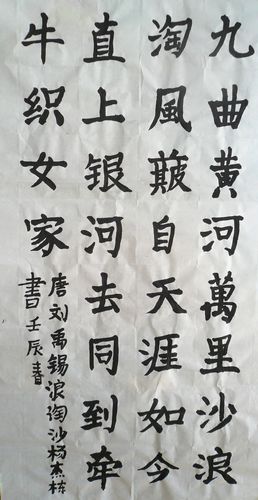 九曲黄河萬里沙浪
淘風簸自天涯如今
直上银河去同到牵
牛织女家
唐刘禹锡浪淘沙杨杰栋
書壬辰春